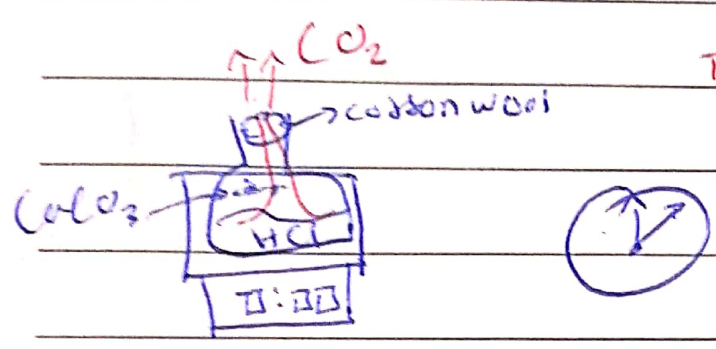 CO2
cotton wool
CaCO3
HCl